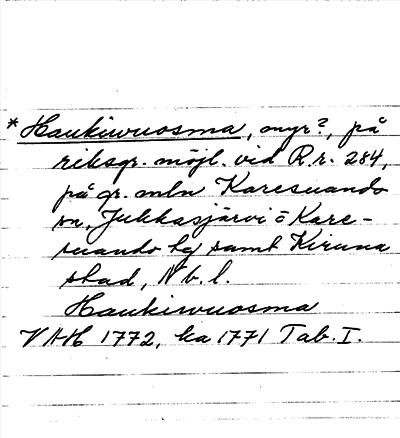 *Haukiwuosma, myr?, på
riksgr. möjl. vid R.r. 284,
på gr. mln Karesuando
sn, Jukkasjärvi o Kare-
suando tg samt Kiruna
stad, Nb. l.
Haukiwuosma
VAH 1772, ka 1771 Tab. I.